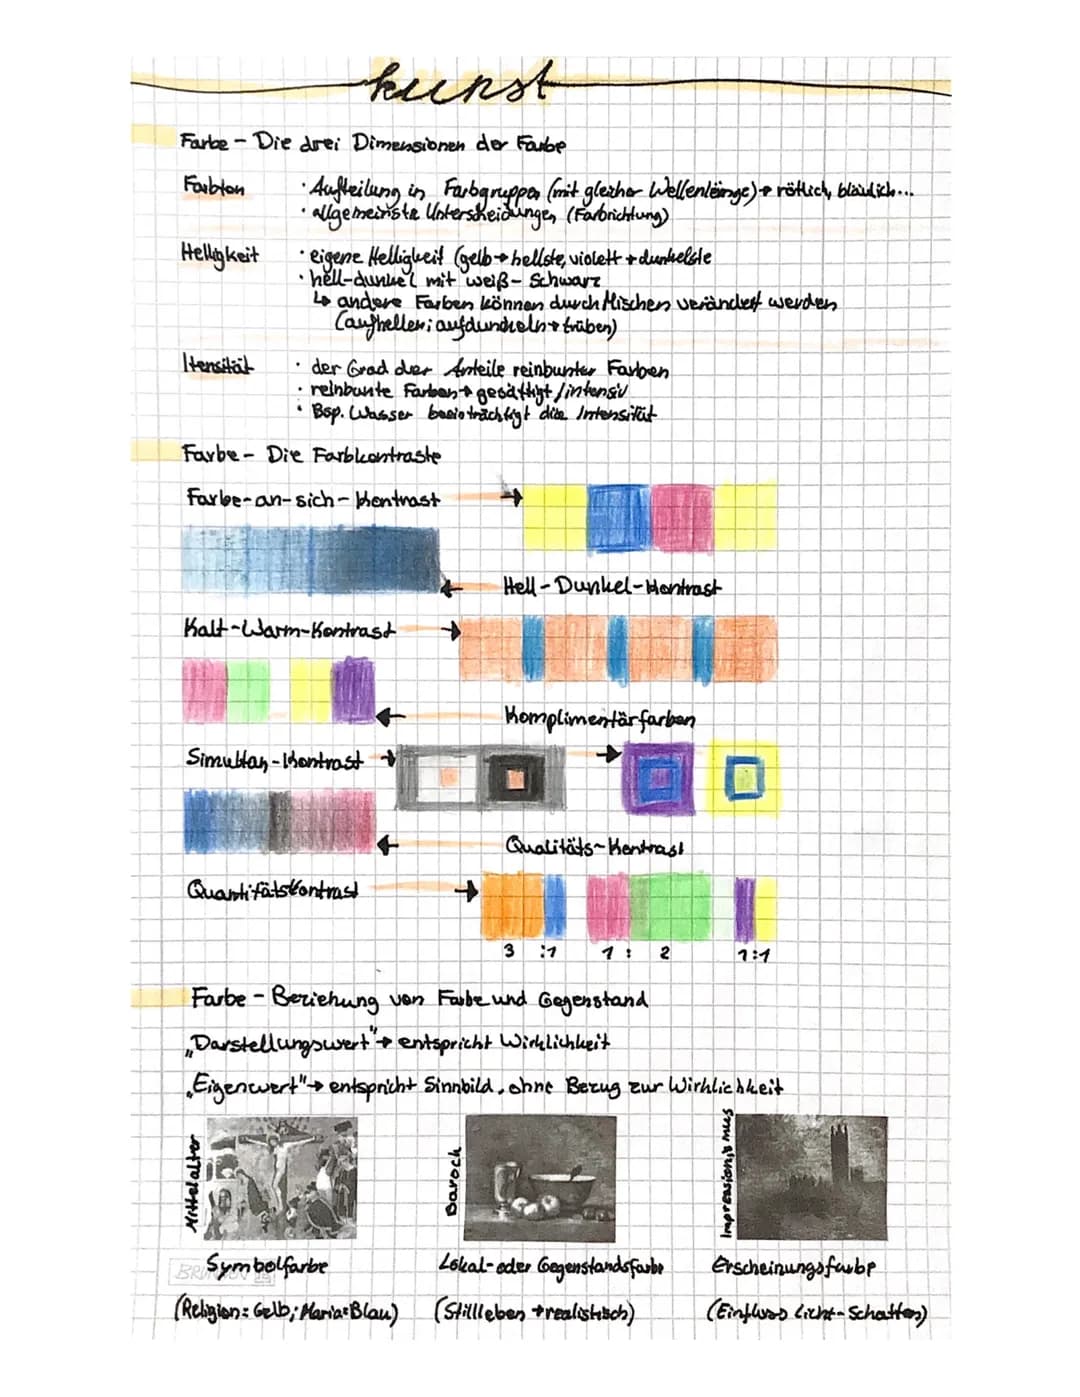 kunst
Farbe - Die drei Dimensionen der Farbe
Farbton
· Aufteilung in Farbgruppen (mit gleicher Wellenlänge) → rötlich, bläulich...
· allgemeinste Unterscheidungen (Farbrichtung)
Helligkeit
· eigene Helligkeit (gelb → hellste, violett → dunkelste
· hell-dunkel mit weiß - Schwarz
↳ andere Farben können durch Mischen verändert werden
(aufhellen; aufdunkeln → trüben)
Itensität
· der Grad der Anteile reinbunter Farben
· reinbunte Farben → gesättigt / intensiv
· Bsp. Wasser beeinträchtigt die Intensität
Farbe - Die Farbkontraste
Farbe-an-sich-Kontrast
Hell-Dunkel-Kontrast
Kalt-Warm-Kontrast
Komplimentärfarben
Simultan-Kontrast
Qualitäts-Kontrast
Quantitätskontrast
3 :1 1 : 2 1:1
Farbe - Beziehung von Farbe und Gegenstand
„Darstellungswert" → entspricht Wirklichkeit
„Eigenwert" → entspricht Sinnbild, ohne Bezug zur Wirklichkeit
Mittelalter
Barock
Impressionismus
Symbolfarbe
Lokal- oder Gegenstandsfarbe
Erscheinungsfarbe
(Religion: Gelb; Maria = Blau)
(Stillleben → realistisch)
(Einfluss Licht-Schatten)